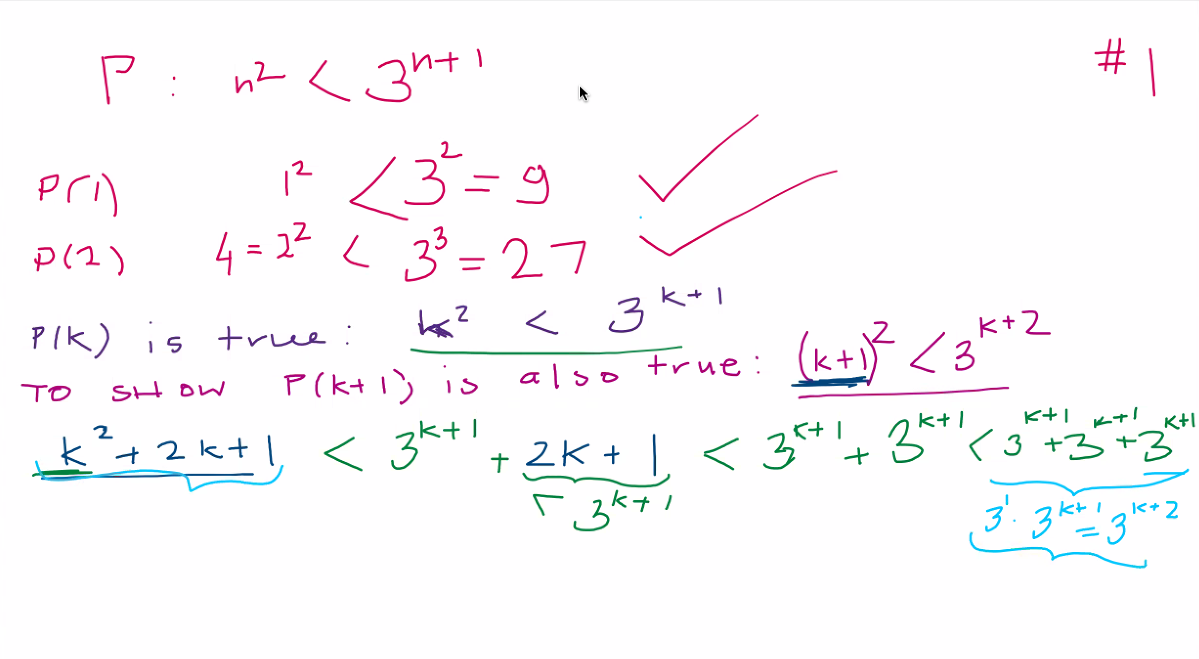 P : n² < 3ⁿ⁺¹ #1
P(1) 1² < 3² = 9 ✓
P(2) 4 = 2² < 3³ = 27 ✓
P(k) is true: k² < 3ᵏ⁺¹
TO SHOW P(k+1) is also true: (k+1)² < 3ᵏ⁺²
k² + 2k + 1 < 3ᵏ⁺¹ + 2k + 1 < 3ᵏ⁺¹ + 3ᵏ⁺¹ < 3ᵏ⁺¹ + 3ᵏ⁺¹ + 3ᵏ⁺¹
< 3ᵏ⁺¹ 3¹ · 3ᵏ⁺¹ = 3ᵏ⁺²